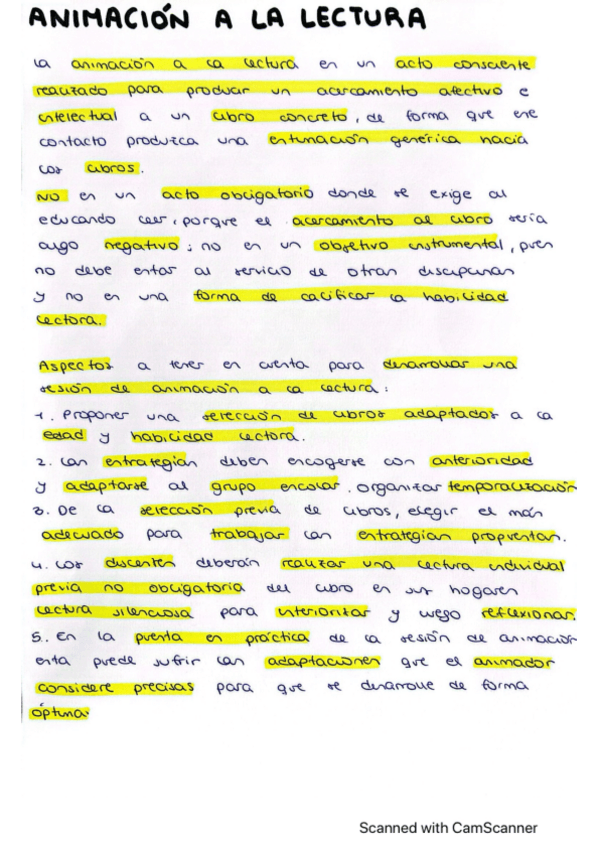 ANIMACIÓN A LA LECTURA
La animación a la lectura es un acto consciente
realizado para producir un acercamiento afectivo e
intelectual a un libro concreto, de forma que ese
contacto produzca una estimación genérica hacia
los libros.
NO es un acto obligatorio donde se exige al
educando leer, porque el acercamiento al libro sería
algo negativo; no es un objetivo instrumental, pues
no debe estar al servicio de otras disciplinas
y no es una forma de calificar la habilidad
lectora.
Aspectos a tener en cuenta para desarrollar una
sesión de animación a la lectura:
1. Proponer una selección de libros adaptados a la
edad y habilidad lectora.
2. Las estrategias deben escogerse con anterioridad
y adaptarse al grupo escolar. Organizar temporalización
3. De la selección previa de libros, elegir el más
adecuado para trabajar las estrategias propuestas.
4. Los discentes deberán realizar una lectura individual
previa no obligatoria del libro en sus hogares
lectura silenciosa para interiorizar y luego reflexionar.
5. En la puesta en práctica de la sesión de animación
esta puede sufrir las adaptaciones que el animador
considere precisas para que se desarrolle de forma
óptima.
Scanned with CamScanner